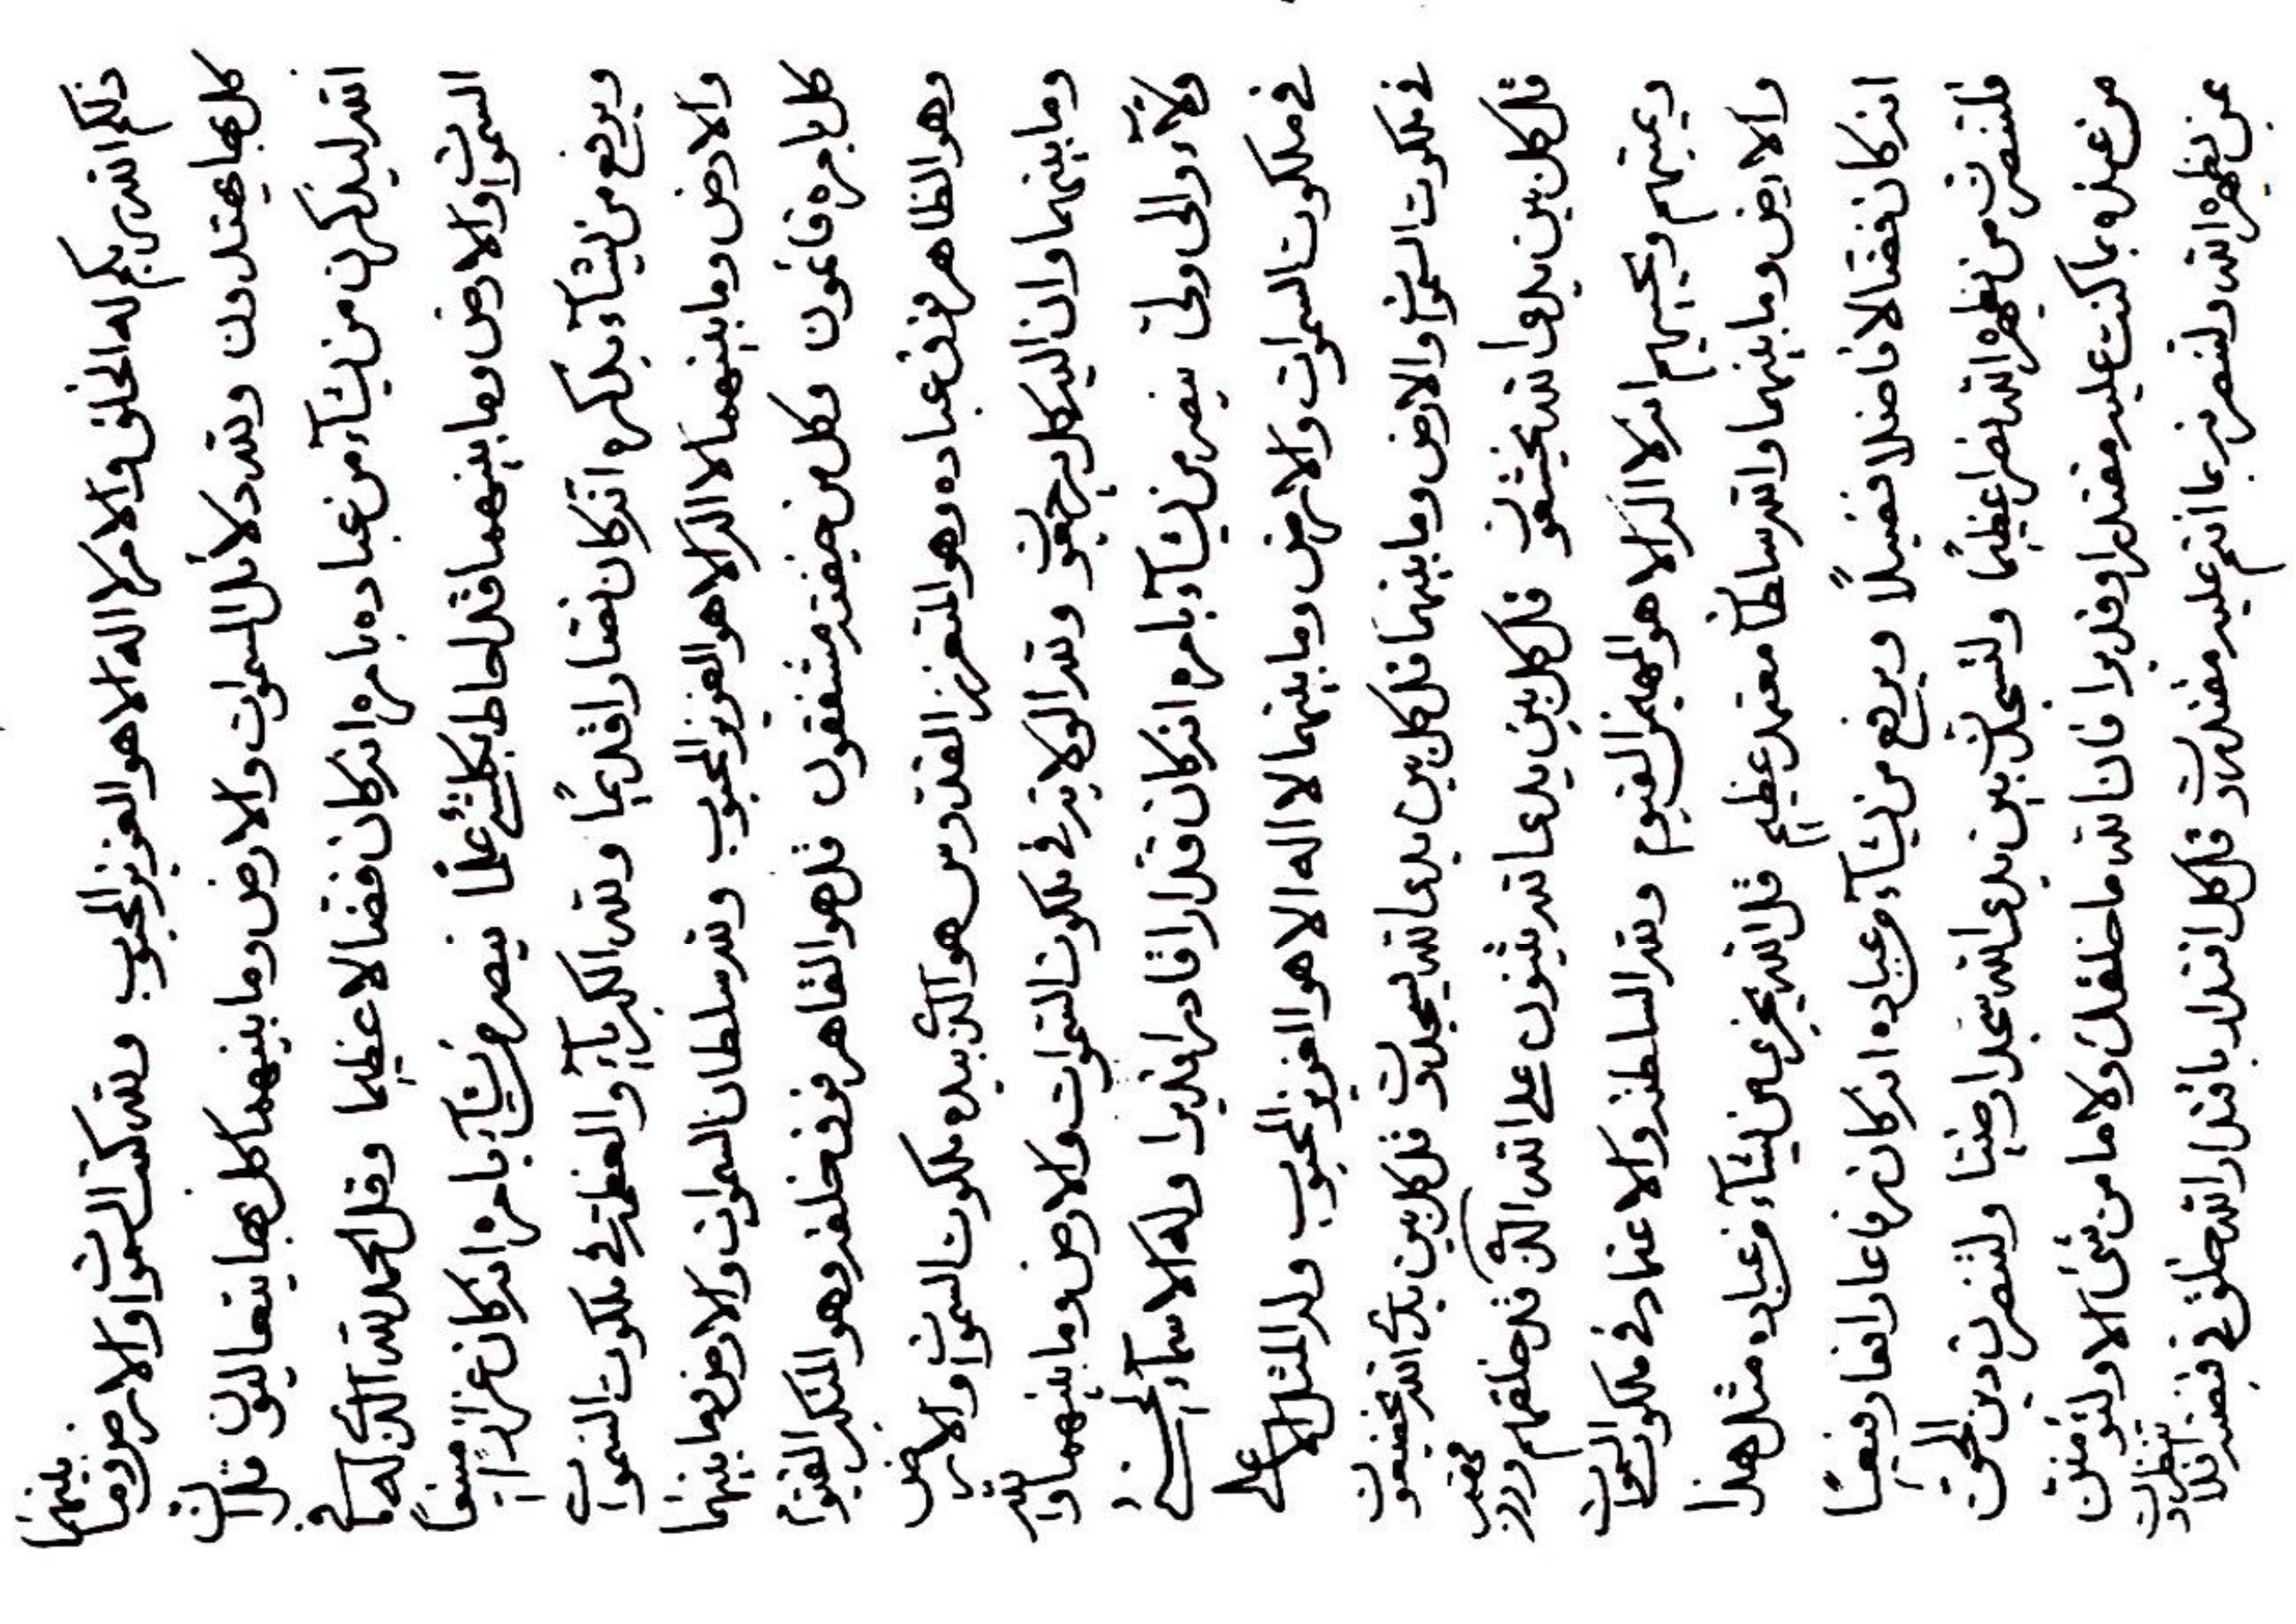 ذلكم الله ربكم له الخلق والامر لا اله الا هو العزيز المحبوب ولله السموات والارض وما بينهما
كل بها يهتدون ولله دلائل السموات والارض وما بينهما كل بها يتعاليون قل ان
الله لينكرن من يشآء من عباده بامره انه كان فضالا عظيما وقل الحمد لله الذى له ما فى
السموات والارض وما بينهما قد احاط بكلشئ علما ينصر من يشآء بامره انه كان عزازا منيعا
ويرفع من يشآء بذكره انه كان نصارا قديما ولله الكبريآء والعظمة فى ملكوت السموات
والارض وما بينهما لا اله الا هو العزيز المحبوب ولله سلطان السموات والارض وما بينهما
كل بامره قائمون وكل من خيفته مشفقون قل هو القاهر فوق خلقه وهو المتكبر القيوم
وهو الظاهر فوق عباده وهو المتعزز القدوس هو الذى بيده ملكوت السموات والارض
وما بينهما وان اليه كل يرجعون ولله الولاية فى ملكوت السموات والارض وما بينهما والله
ولآء والى ولى ينصر من يشآء بامره انه كان قدارا قادرا قديرا وله الاسمآء الحسنى
فى ملكوت السموات والارض وما بينهما لا اله الا هو العزيز المحبوب وله المثل الاعلى
فى ملكوت السموات والارض وما بينهما قل كل بين يدى الله يسجدون قل كل بين يدى الله يخضعون
قل كل بين يدى الله يخشعون قل كل بين يدى الله يثنون على الله الذى قد خلقهم ورزقهم
ويميتهم ويحييهم انه لا اله الا هو المهيمن القيوم ولله السلطنة والاعتماد فى ملكوت السموات
والارض وما بينهما والله سلطان معتمد عظيم قل الله يخبر عمن يشآء من عباده مثل هذا
انه كان فضالا فاضلا فضيلا ويرفع من يشآء من عباده انه كان رفاعا رافعا رفيعا
فلتنصرن من يظهره الله نصرا عظيما ولتسجدن بين يدى الله سجدا رضيا ولتنصرن دين الحق
من عنده بما كنت عليه مقتدرا وقديرا فان الله ما خلقك ولا ما من شئ الا ولتؤمنن
عن يظهره الله ولتنصرنه بما انتم عليه مقتدرون قل كل اقتدار باقتدار الله خلق فى قبضته افلا تنظرون